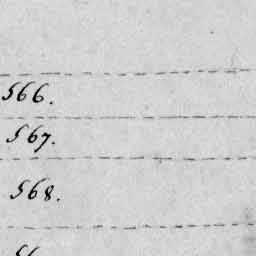 566.
567.
568.